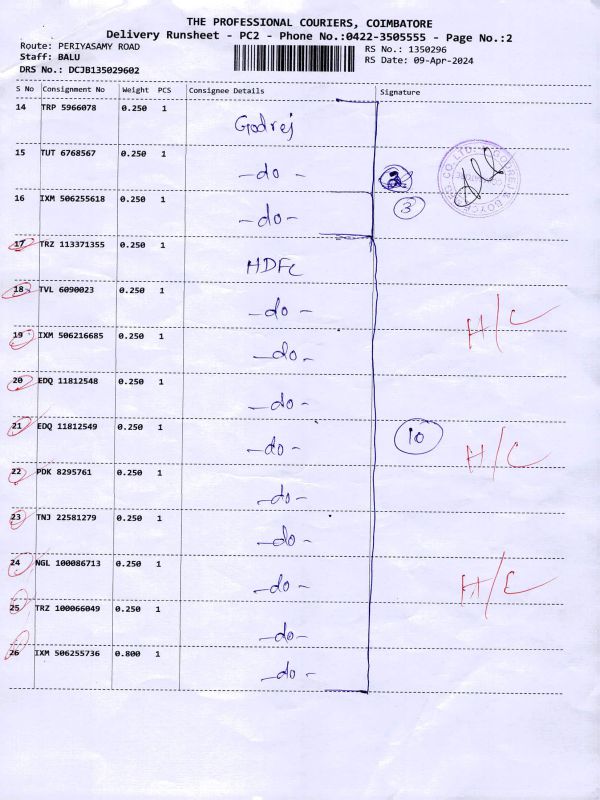 THE PROFESSIONAL COURIERS, COIMBATORE
Delivery Runsheet - PC2 - Phone No.:0422-3505555 - Page No.:2
Route: PERIYASAMY ROAD RS No.: 1350296
Staff: BALU RS Date: 09-Apr-2024
DRS No.: DCJB135029602
S No Consignment No Weight PCS Consignee Details Signature
14 TRP 5966078 0.250 1 Godrej
15 TUT 6768567 0.250 1 -do-
16 IXM 506255618 0.250 1 -do- 3
17 TRZ 113371355 0.250 1 HDFC
18 TVL 6090023 0.250 1 -do- H/C
19 IXM 506216685 0.250 1 -do-
20 EDQ 11812548 0.250 1 -do-
21 EDQ 11812549 0.250 1 -do- 10 H/C
22 PDK 8295761 0.250 1 -do-
23 TNJ 22581279 0.250 1 -do-
24 NGL 100086713 0.250 1 -do- H/C
25 TRZ 100066049 0.250 1 -do-
26 IXM 506255736 0.800 1 -do-